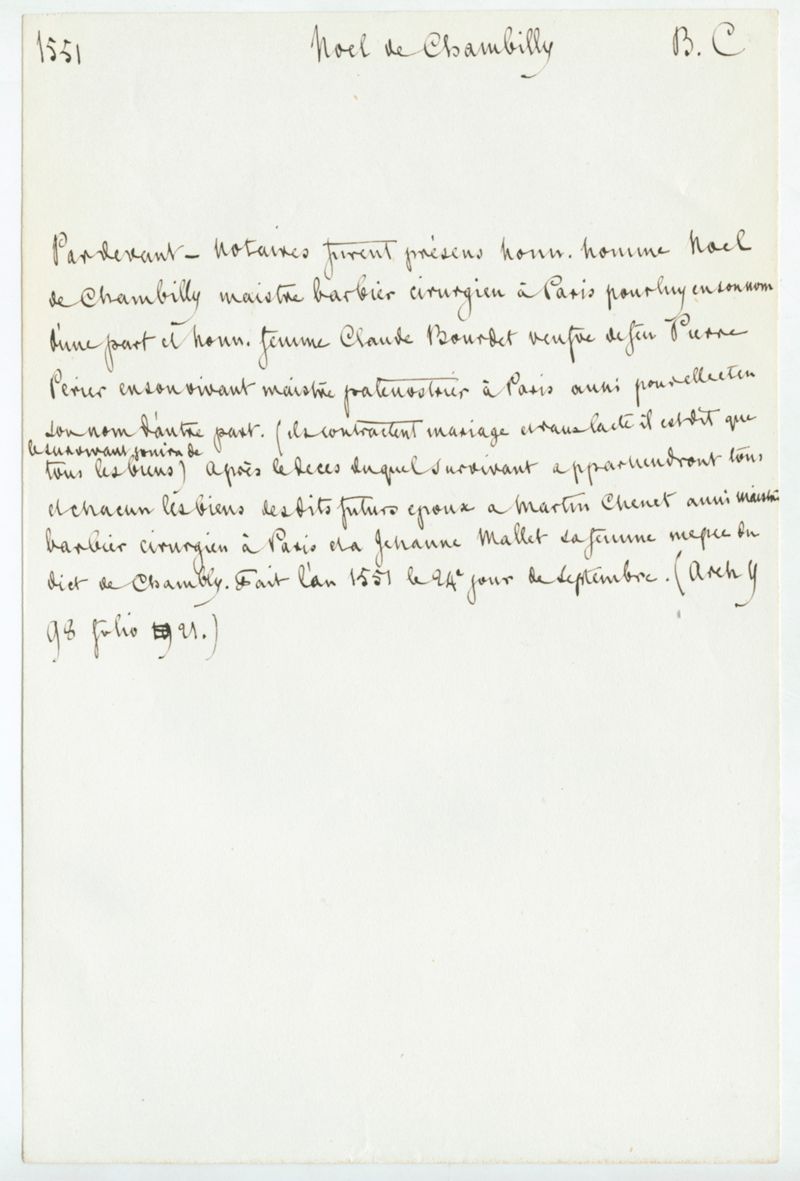 1551 Noel de Chambilly B. C
Pardevant – Notaires furent présens honn. homme Noel
de Chambilly maistre barbier cirurgien à Paris pour luy en son nom
d'une part et honn. femme Claude Bourdet veufve de feu Pierre
Perier en son vivant maistre patenostrier à Paris aussi pour elle et en
son nom d'autre part. (ils contractent mariage et dans l'acte il est dit que
le survivant jouira de
tous les biens) Après le deces duquel survivant appartiendront tous
et chacun les biens desdits futurs epoux a Martin Chenet aussi maistre
barbier cirurgien à Paris et a Jehanne Mallet sa femme niepce du
dict de Chambly. Fait l'an 1551 le 24e jour de Septembre. (Arch Y
98 folio 21.)